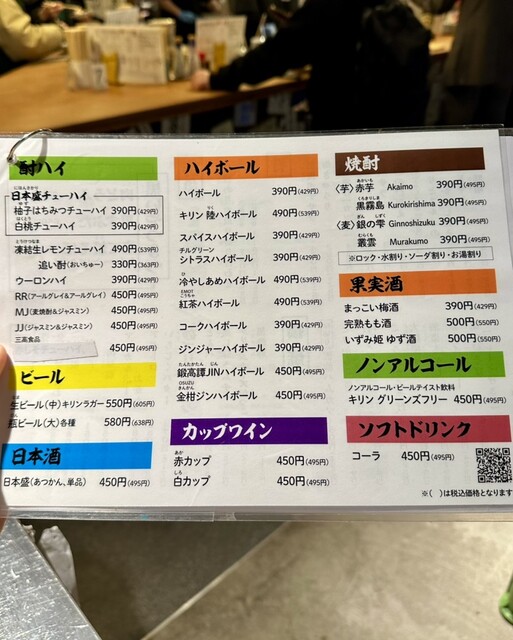 酎ハイ
にほんさかり
日本盛チューハイ
ゆず
柚子はちみつチューハイ 390円(429円)
はくとう
白桃チューハイ 390円(429円)
とうけつなま
凍結生レモンチューハイ 490円(539円)
追い酎(おいちゅー) 330円(363円)
ウーロンハイ 390円(429円)
RR(アールグレイ&アールグレイ) 450円(495円)
MJ(麦焼酎&ジャスミン) 450円(495円)
JJ(ジャスミン&ジャスミン) 450円(495円)
三高食品
450円(495円)
ビール
生ビール(中)キリンラガー 550円(605円)
瓶ビール(大)各種 580円(638円)
日本酒
日本盛(あつかん、単品) 450円(495円)
ハイボール
ハイボール 390円(429円)
りく
キリン 陸ハイボール 490円(539円)
スパイスハイボール 390円(429円)
チルグリーン
シトラスハイボール 390円(429円)
ひ
冷やしあめハイボール 490円(539円)
EMOT
こうちゃ
紅茶ハイボール 390円(429円)
コークハイボール 390円(429円)
ジンジャーハイボール 390円(429円)
たんたかたん じん
鍛高譚JINハイボール 450円(495円)
OSUZU
きんかん
金柑ジンハイボール 450円(495円)
カップワイン
あか
赤カップ 450円(495円)
しろ
白カップ 450円(495円)
焼酎
あかいも
〈芋〉赤芋 Akaimo 390円(495円)
くろきりしま
黒霧島 Kurokirishima 390円(495円)
ぎん しずく
〈麦〉銀の雫 Ginnoshizuku 390円(495円)
むらくも
叢雲 Murakumo 390円(495円)
※ロック・水割り・ソーダ割り・お湯割り
果実酒
まっこい梅酒 390円(429円)
完熟もも酒 500円(550円)
いずみ姫 ゆず酒 500円(550円)
ノンアルコール
ノンアルコール・ビールテイスト飲料
キリン グリーンズフリー 450円(495円)
ソフトドリンク
コーラ 450円(495円)
※( )は税込価格となります